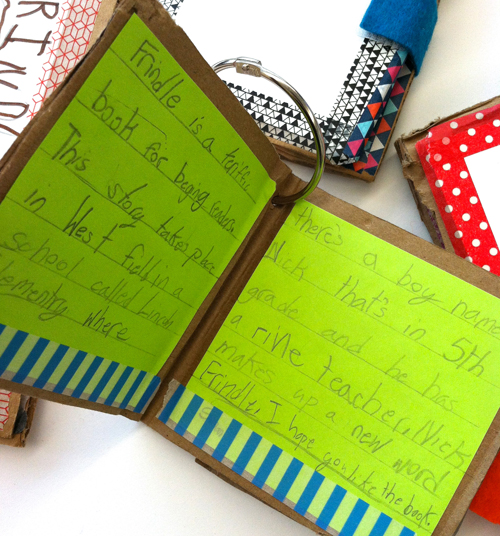 RINDL
Frindle is a
book for
This story takes place
in West field in a
school called
elementry where
there's a boy name
Nick that's in 5th
grade and he has
a teacher. Nick
makes up a new word
Frindle. I hope you like the book.